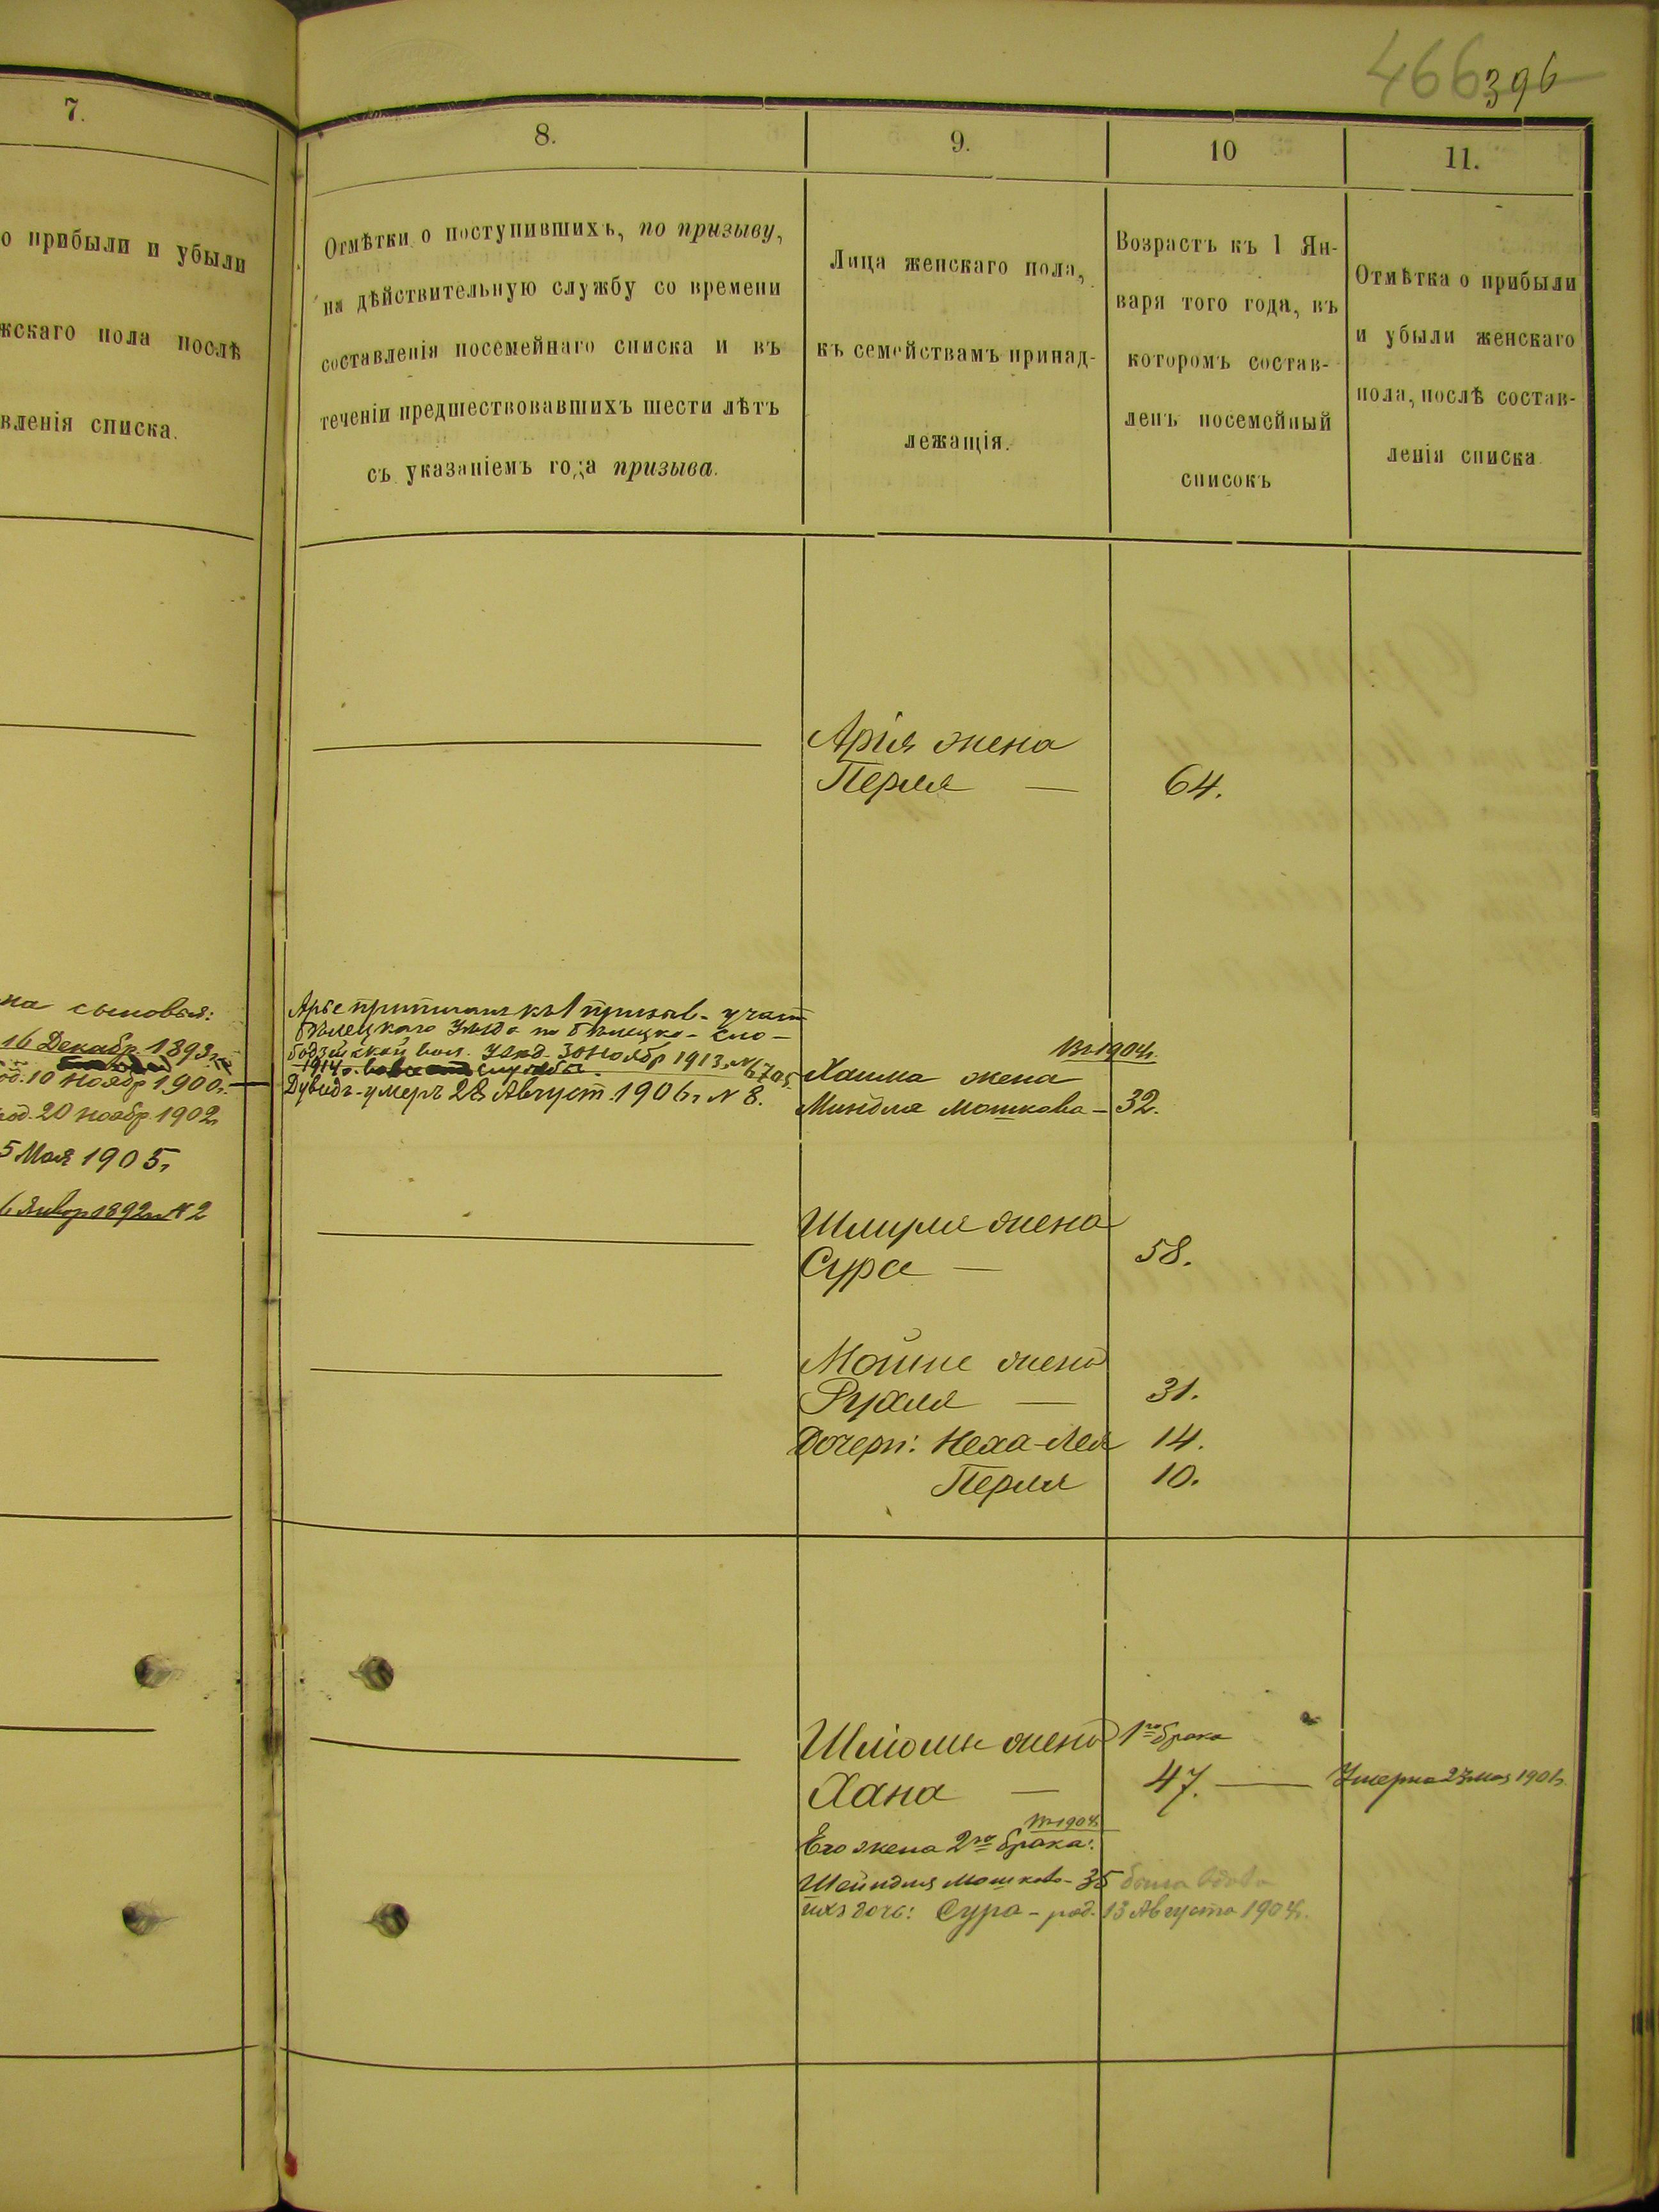 466 396
7.
о прибыли и убыли
жскаго пола послѣ
вленія списка.
на сыновья:
16 Декабр. 1893 г.
од. 10 Ноябр 1900 г.
род. 20 Ноябр. 1902
5 Мая 1905 г
6 Январ 1892 г N 2
8.
Отмѣтки о поступившихъ, по призыву,
на дѣйствительную службу со времени
составленія посемейнаго списка и въ
теченіи предшествовавшихъ шести лѣтъ
съ указаніемъ года призыва.
Арье приписанъ къ 1 призыв. участ
Бѣлецкаго Уѣзда по Бѣлецко-Сло-
бодзейской вол. 30 Ноябр 1913 г. N 6705
1914 г. службы.
Дувидъ - умеръ 28 Август. 1906 г N 8.
9.
Лица женскаго пола,
къ семействамъ принад-
лежащія.
10
Возрастъ къ 1 Ян-
варя того года, въ
которомъ состав-
ленъ посемейный
списокъ
11.
Отмѣтка о прибыли
и убыли женскаго
пола, послѣ состав-
ленія списка
Арія жена
Перля — 64.
Въ 1904 г.
Хаима жена
Миндля Мошкова — 32.
Шмуля жена
Сура — 58.
Мойше жена
Рухля — 31.
Дочери: Неха-Лея 14.
Перля 10.
Шліомы жена 1го брака
Хана — 47. — Умерла 23 мая 1901 г.
въ 1904 г.
Его жена 2го брака:
Шейндля Мошкова - 35 была вдова
ихъ дочь: Сура - род. 13 Августа 1904 г.